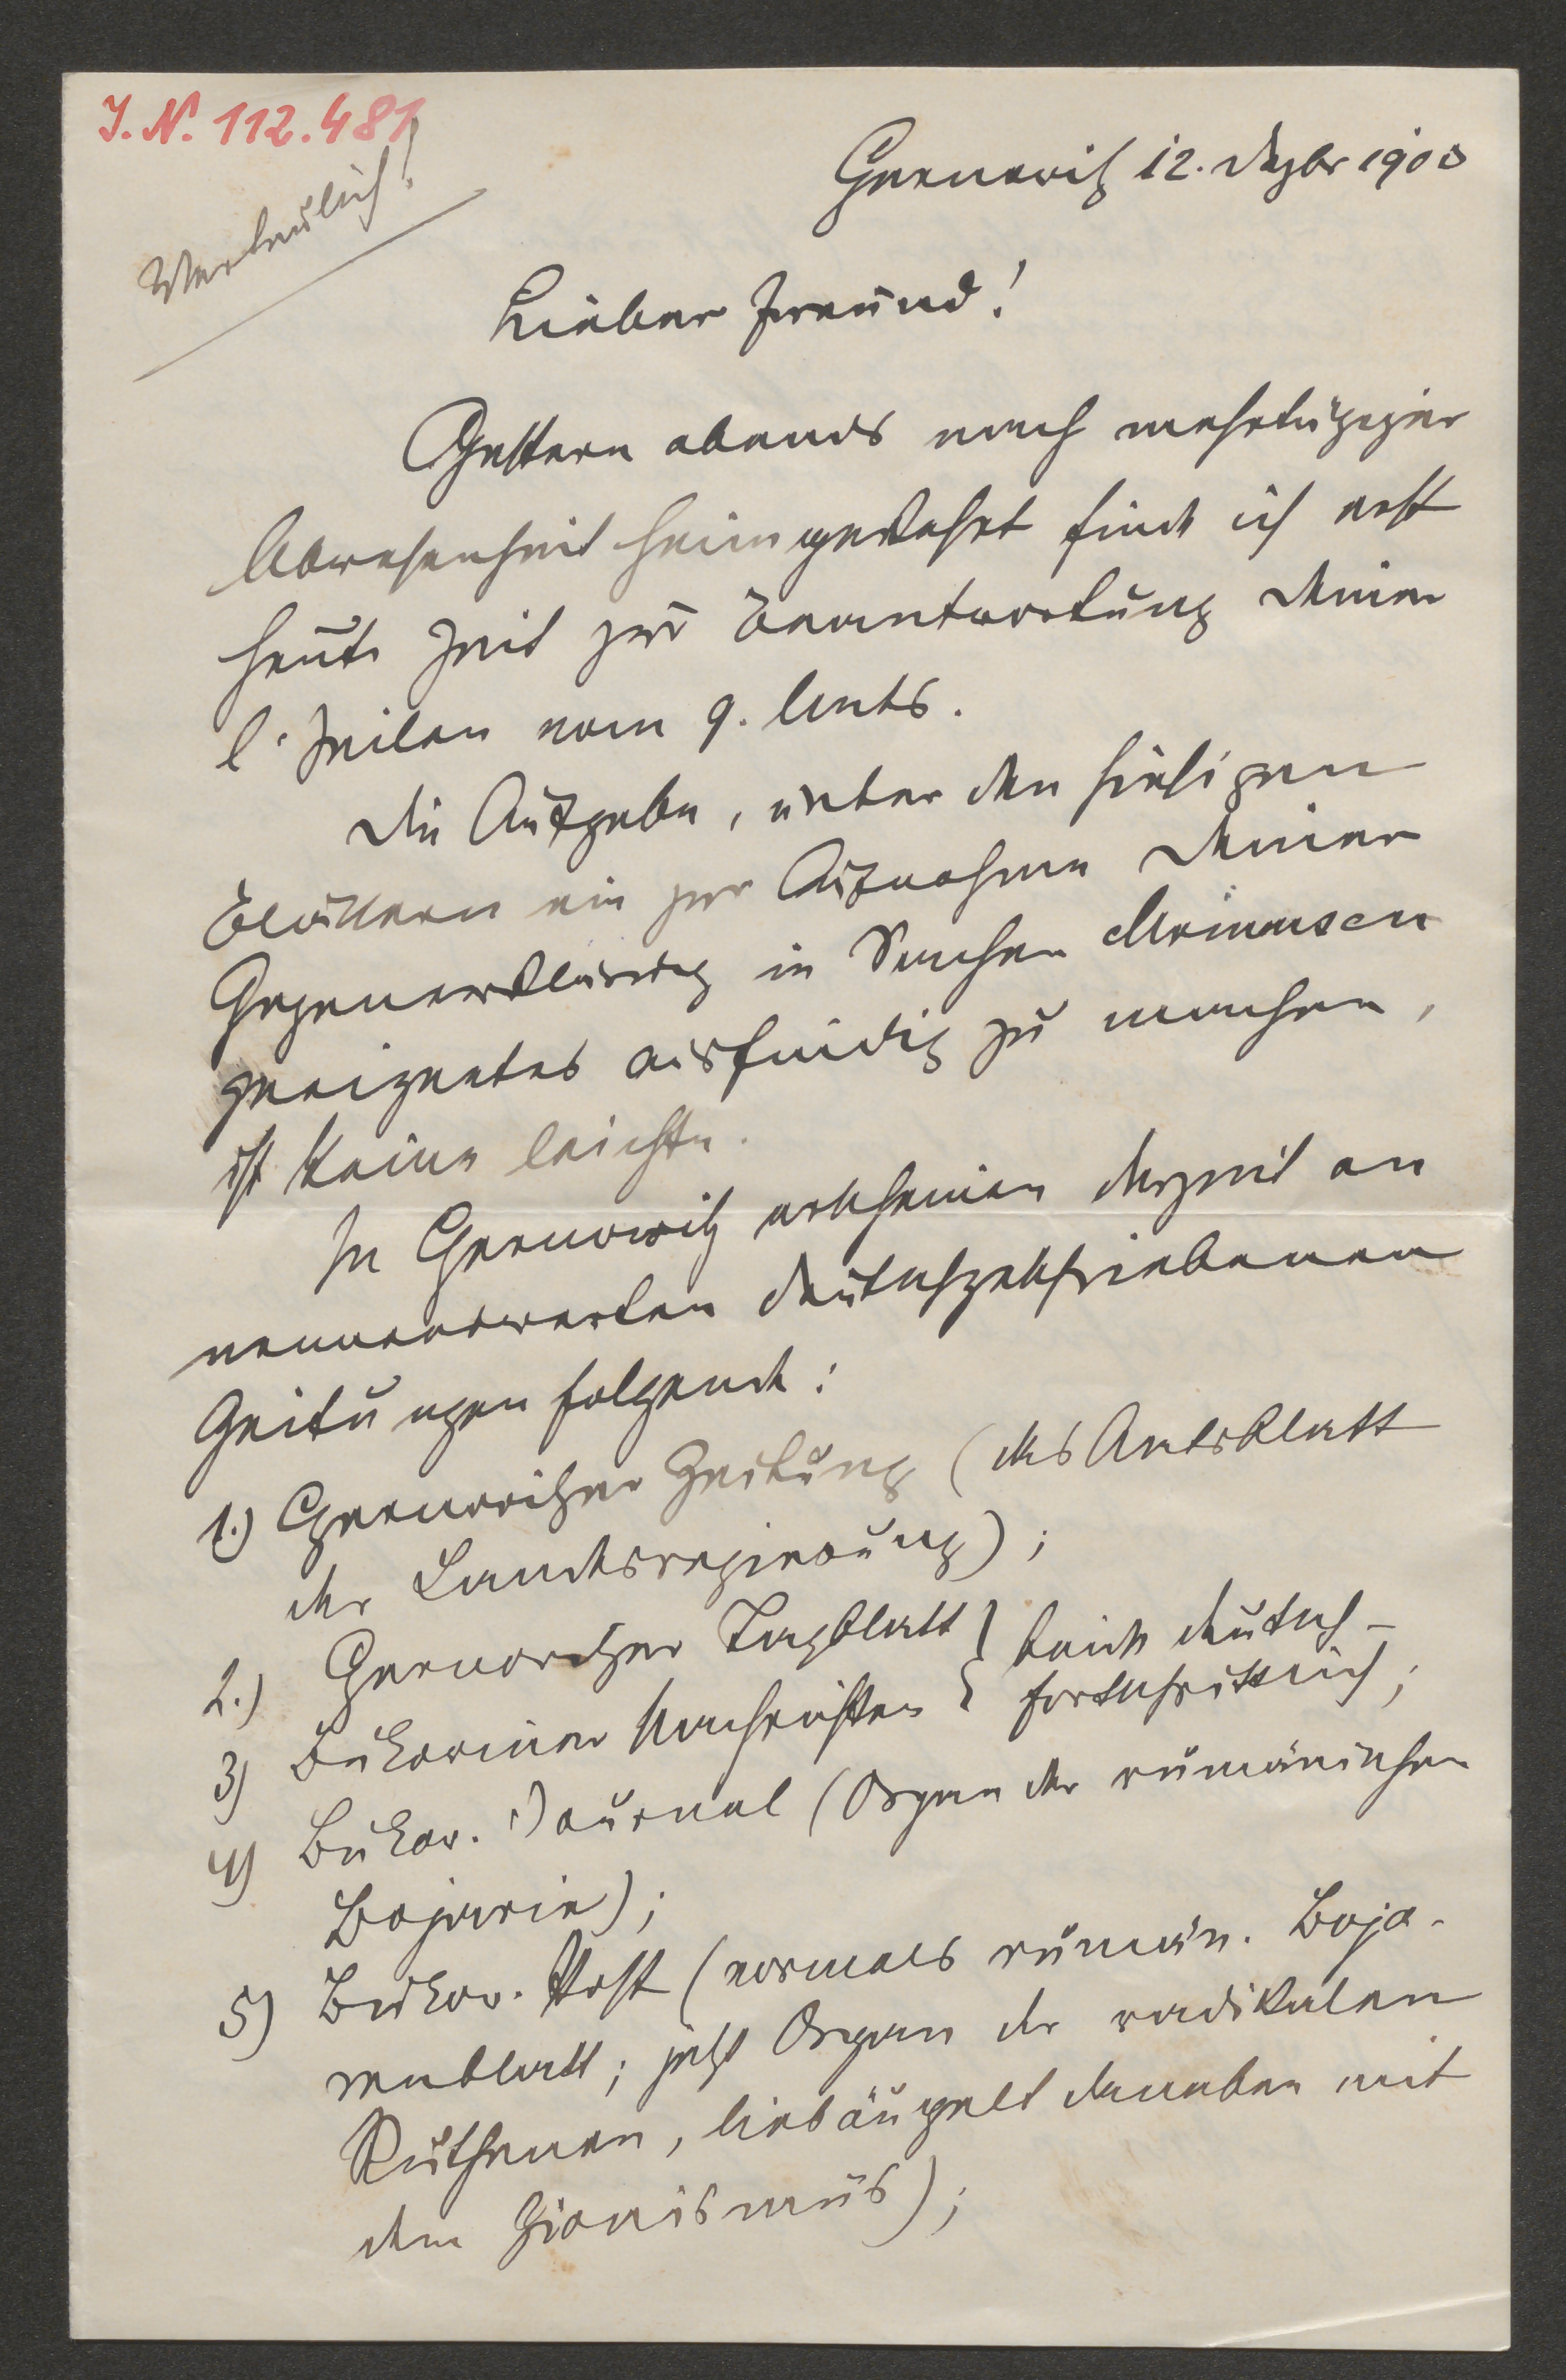 I. N. 112.481
Vertraulich!
Czernowitz 12. Dezbr 1903
Lieber Freund!
Gestern abends nach mehrtägiger
Abwesenheit heimgekehrt finde ich erst
heute Zeit zur Beantwortung Deiner
l. Zeilen vom 9. lmts.
Die Aufgabe, unter den hiesigen
Blättern ein zur Aufnahme Deiner
Gegenerklärung in Sachen Mommsen
geeignetes ausfindig zu machen,
ist keine leichte.
In Czernowitz erscheinen derzeit an
nennenswerten deutschgeschriebenen
Zeitungen folgende:
1.) Czernowitzer Zeitung (das Amtsblatt
der Landesregierung);
2.) Czernowitzer Tagblatt } beide deutsch-
3) Bukowiner Nachrichten } fortschrittlich;
4) Bukow. Journal (Organ der rumänischen
Bojarie);
5) Bukow. Post (vormals rumän. Boja-
renblatt; jetzt Organ der radikalen
Ruthenen, liebäugelt daneben mit
dem Zionismus);